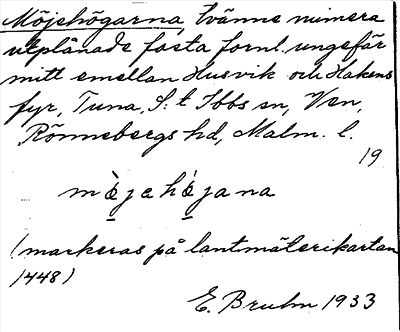 Möjehögarna, tvänne numera
utplånade fasta fornl. ungefär
mitt emellan Husvik och Hakens
fyr, Tuna, S:t Ibbs sn, Ven,
Rönnebergs hd, Malm. l.
19
mø̀jehǿjana
(markeras på lantmäterikartan
1448)
E. Bruhn 1933